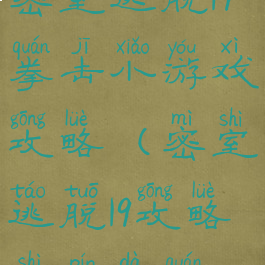 密室逃脱19
quán jī xiǎo yóu xì
拳击小游戏
gōng lüè mì shì
攻略(密室
táo tuō gōng lüè
逃脱19攻略
shì pín dà quán